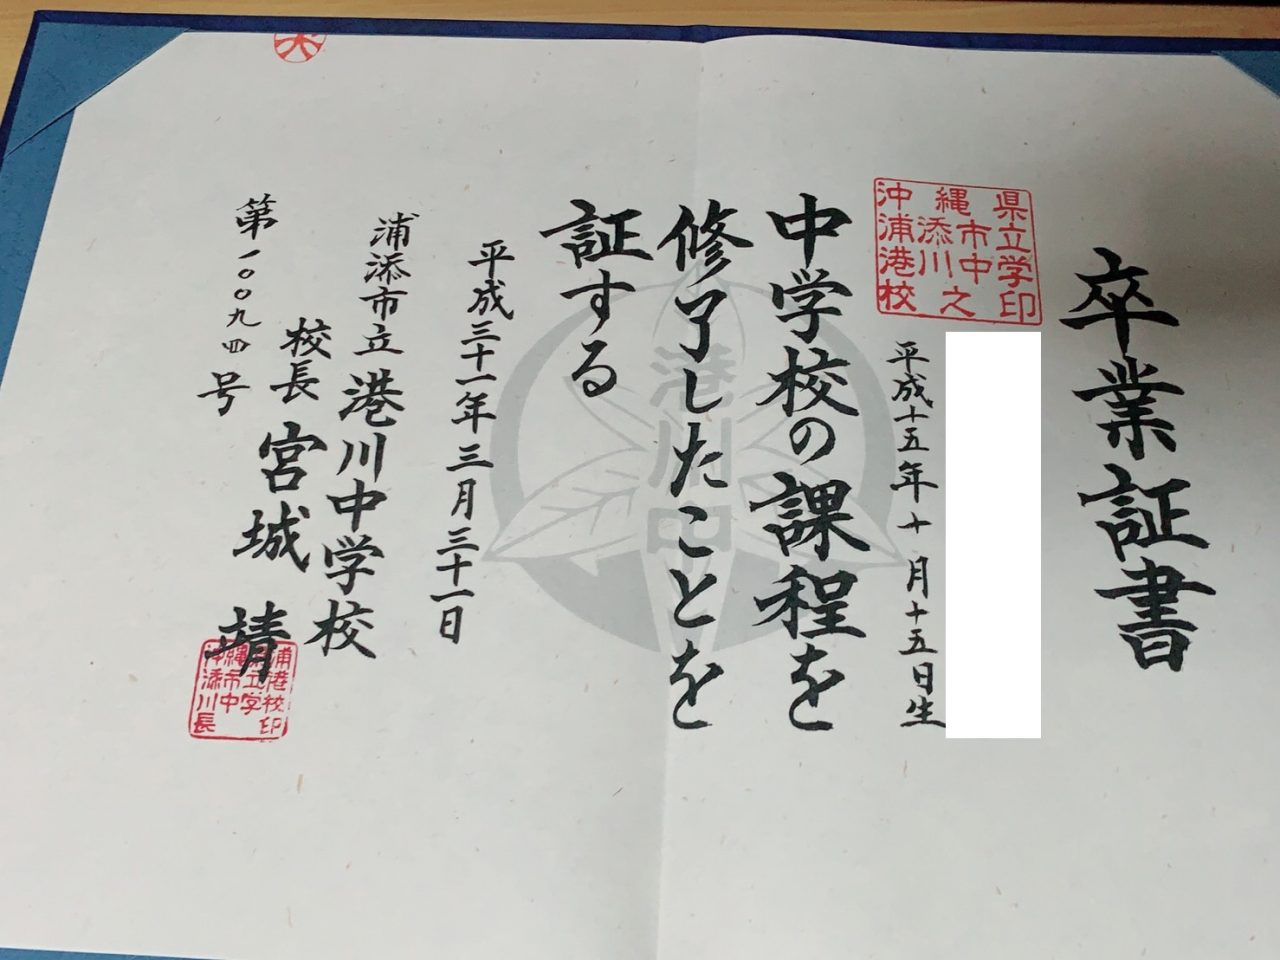 卒業証書
沖縄県
浦添市立
港川中学
校之印
平成十五年十月十五日生
中学校の課程を
修了したことを
証する
港川中
平成三十一年三月三十一日
浦添市立港川中学校
校長 宮城 靖
沖縄県浦
添市立港
川中学校
長印
第一〇〇九四号